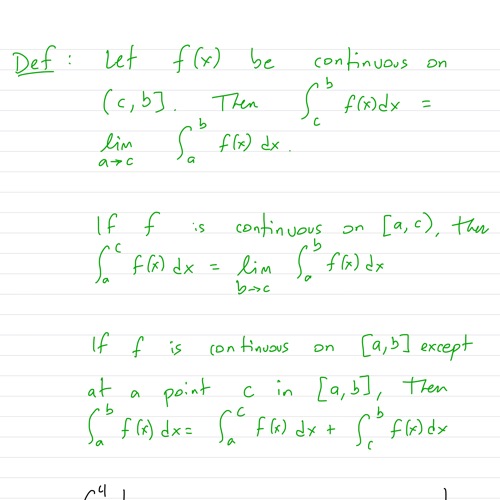 Def: Let f(x) be continuous on
(c, b]. Then ∫_c^b f(x)dx =
lim_{a→c} ∫_a^b f(x) dx.
If f is continuous on [a, c), then
∫_a^c f(x) dx = lim_{b→c} ∫_a^b f(x) dx
If f is continuous on [a, b] except
at a point c in [a, b], then
∫_a^b f(x) dx = ∫_a^c f(x) dx + ∫_c^b f(x) dx